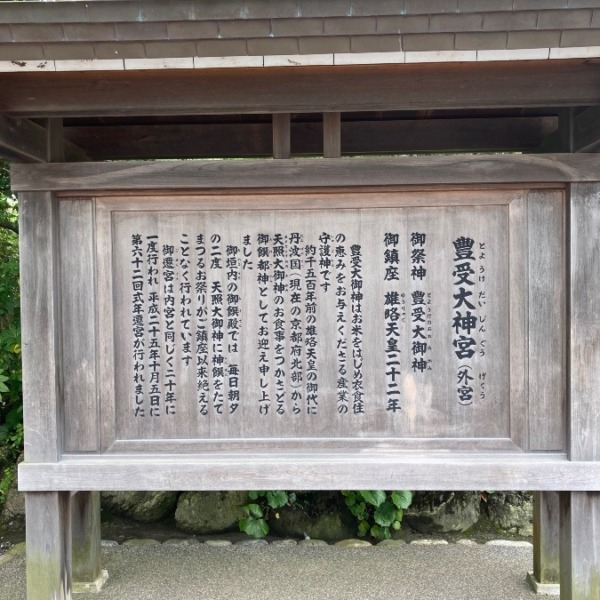 豊受大神宮（外宮）
とようけ だい じん ぐう げくう
御祭神 豊受大御神
御鎮座 雄略天皇二十二年
豊受大御神はお米をはじめ衣食住
の恵みをお与えくださる産業の
守護神です
約千五百年前の雄略天皇の御代に
丹波国（現在の京都府北部）から
天照大御神のお食事をつかさどる
御饌都神としてお迎え申し上げ
ました
御垣内の御饌殿では 毎日朝夕
の二度 天照大御神に神饌をたて
まつるお祭りがご鎮座以来絶える
ことなく行われています
御遷宮は内宮と同じく二十年に
一度行われ 平成二十五年十月五日に
第六十二回式年遷宮が行われました